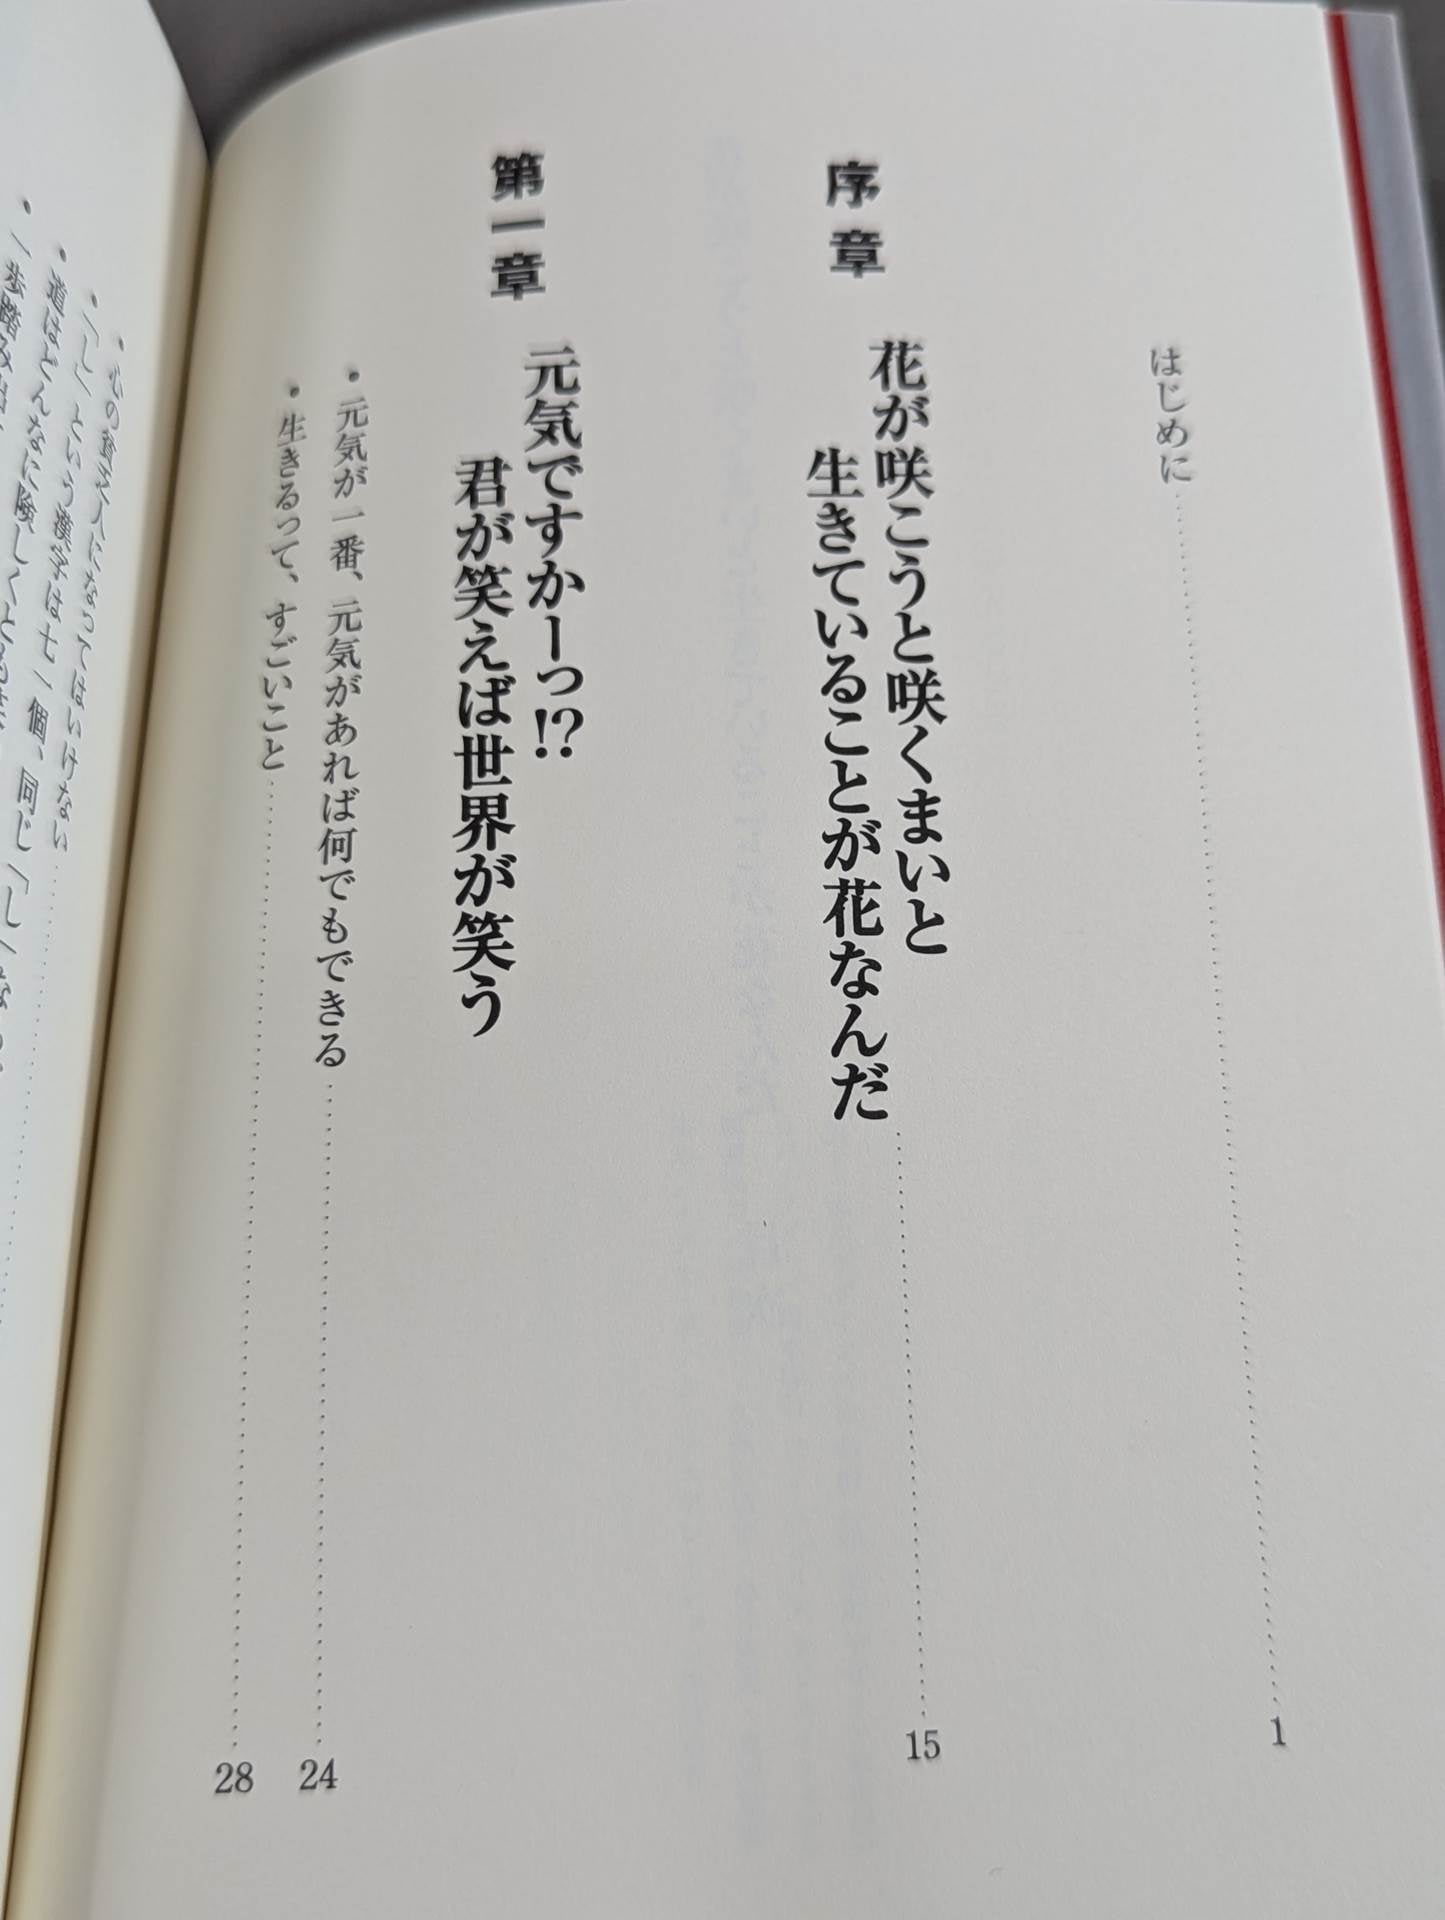 はじめに 1
序章
花が咲こうと咲くまいと
生きていることが花なんだ 15
第一章
元気ですかーっ!?
君が笑えば世界が笑う
・元気が一番、元気があれば何でもできる 24
・生きるって、すごいこと 28
・心の貧乏人になってはいけない
・「し」という漢字は七一個、同じ「し」なら
・道はどんなに険しくとも
・一歩踏み出